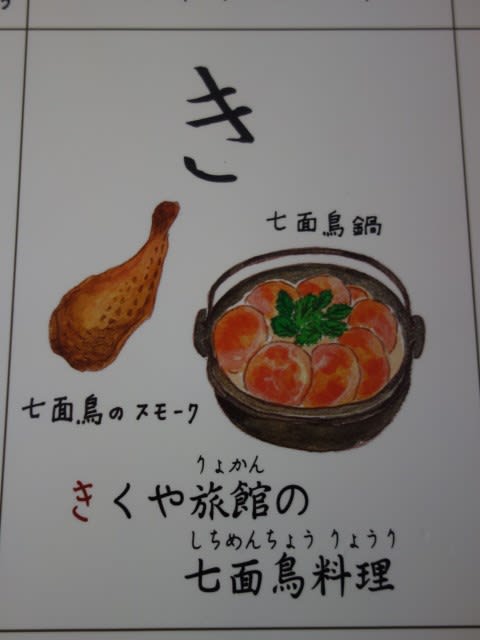 き
七面鳥鍋
七面鳥のスモーク
りょかん
きくや旅館の
しちめんちょう りょうり
七面鳥料理